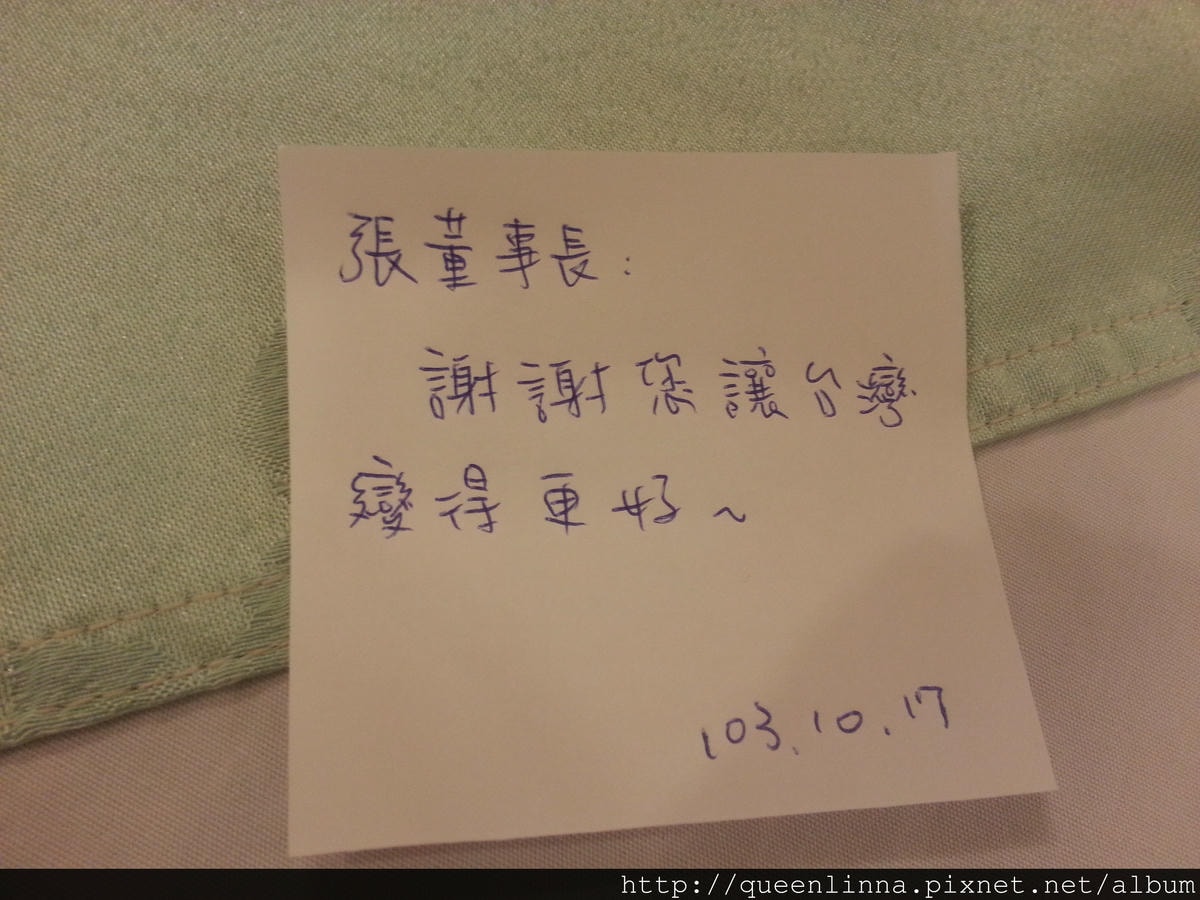 張董事長:
謝謝您讓台灣
變得更好~
103.10.17
http://queenlinna.pixnet.net/album